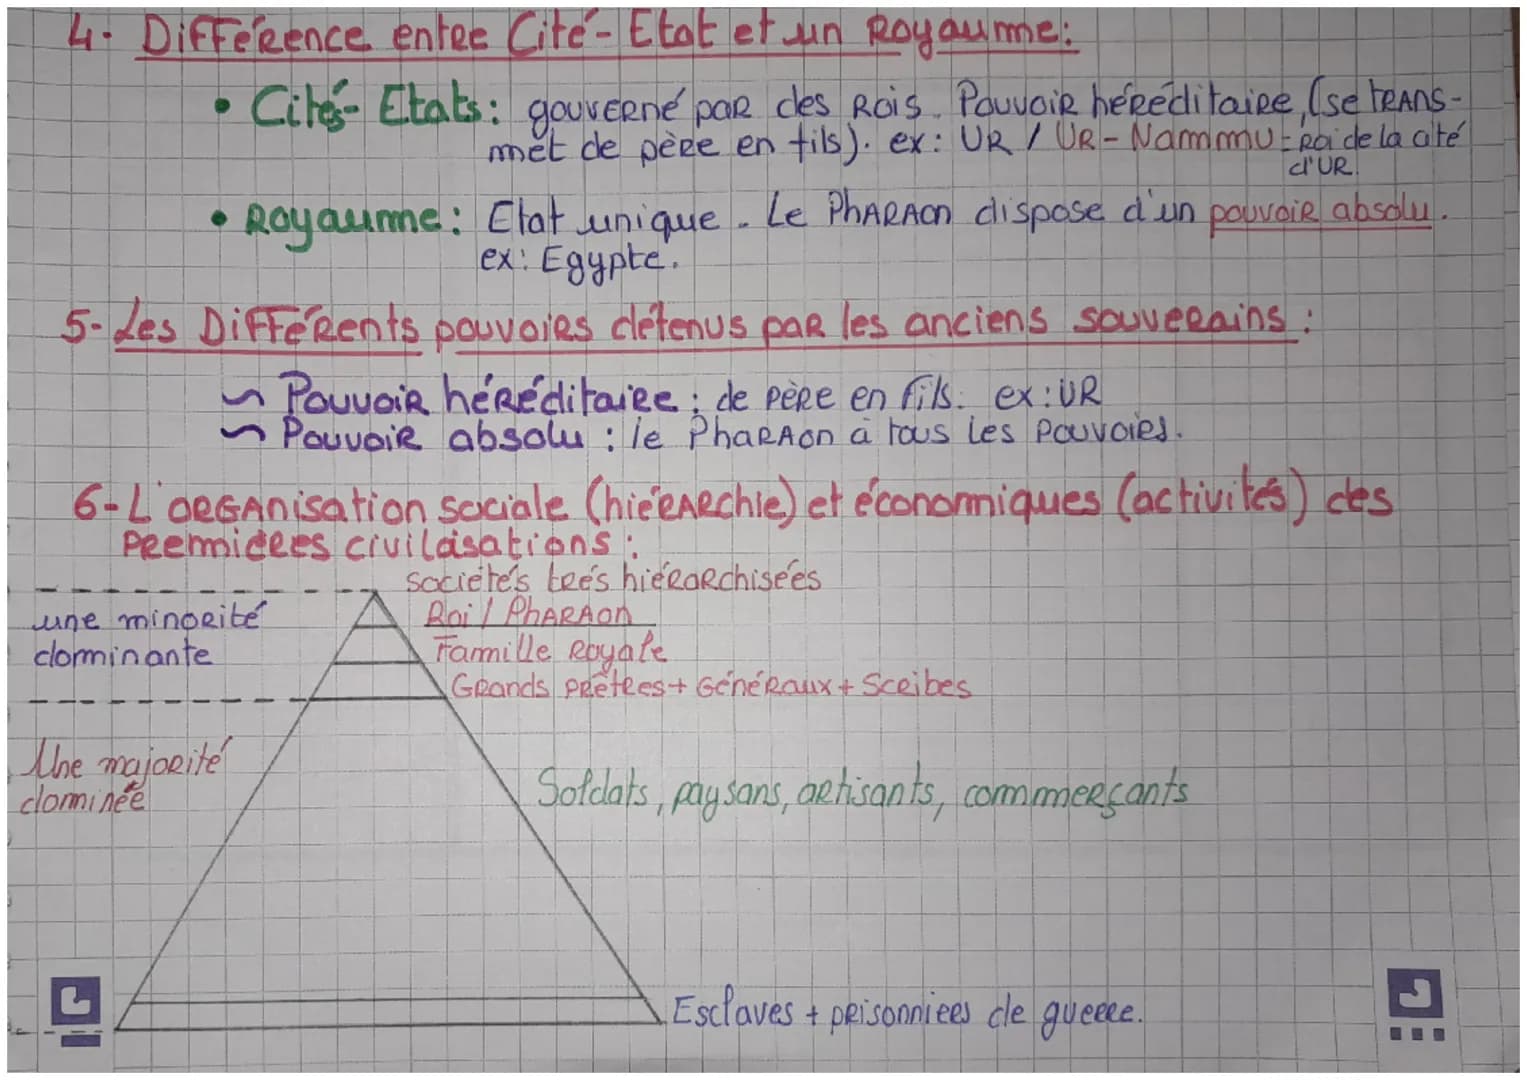 4- Différence entre Cité-Etat et un Royaume:
• Cités-Etats: gouverné par des Rois. Pouvoir héréditaire, (se trans-
met de père en fils). ex: UR / UR-Nammu = Roi de la cité
d'UR.
• Royaume: Etat unique. Le Pharaon dispose d'un pouvoir absolu.
ex: Egypte.
5- Les Différents pouvoirs détenus par les anciens souverains:
Pouvoir héréditaire: de père en fils. ex: UR
Pouvoir absolu: le Pharaon à tous les pouvoirs.
6- L'organisation sociale (hiérarchie) et économiques (activités) des
premières civilaisations:
sociétés très hiérarchisées
une minorité
dominante
Roi / Pharaon
Famille Royale
Grands prêtres + Généraux + Scribes
Une majorité
dominée
Soldats, paysans, artisants, commmerçants
Esclaves + prisonniers de guerre.